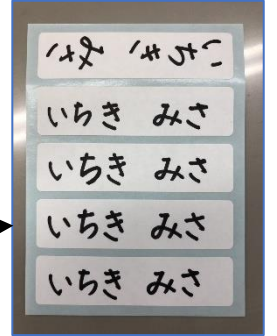 いちき みさ
いちき みさ
いちき みさ
いちき みさ
いちき みさ